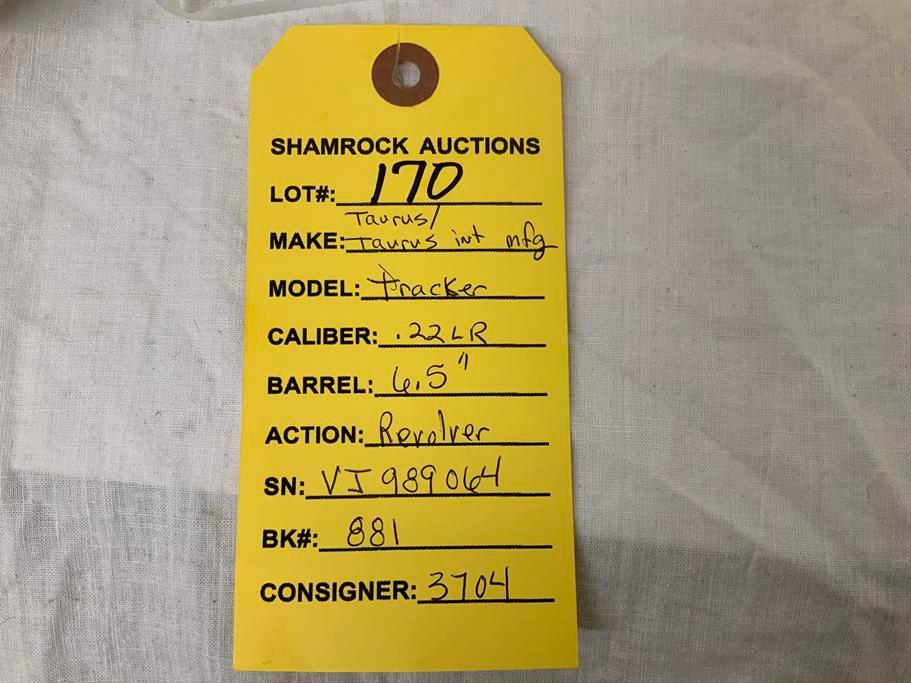 SHAMROCK AUCTIONS
LOT#: 170
Taurus/
MAKE: Taurus int mfg
MODEL: tracker
CALIBER: .22LR
BARREL: 6.5"
ACTION: Revolver
SN: VJ989064
BK#: 881
CONSIGNER: 3704